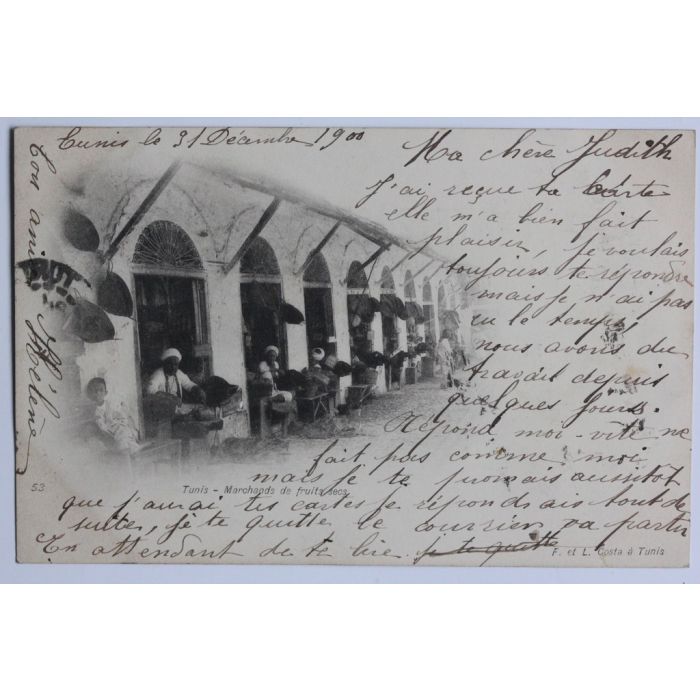 Tunis le 31 Décembre 1900
Ma chère Judith
J'ai reçue ta carte
elle m'a bien fait
plaisir, je voulais
toujours te répondre
mais je n'ai pas
eu le temps,
nous avons du
travail depuis
quelques jours.
Répond moi-vite ne
fait pas comme moi
mais je te promais aussitot
que j'aurai tes cartes je répondrais tout de
suite, je te quitte le courrier va partir
En attendant de te lire je te quitte
Ton amie
Hélène
53
Tunis - Marchands de fruits secs
F. et L. Costa à Tunis